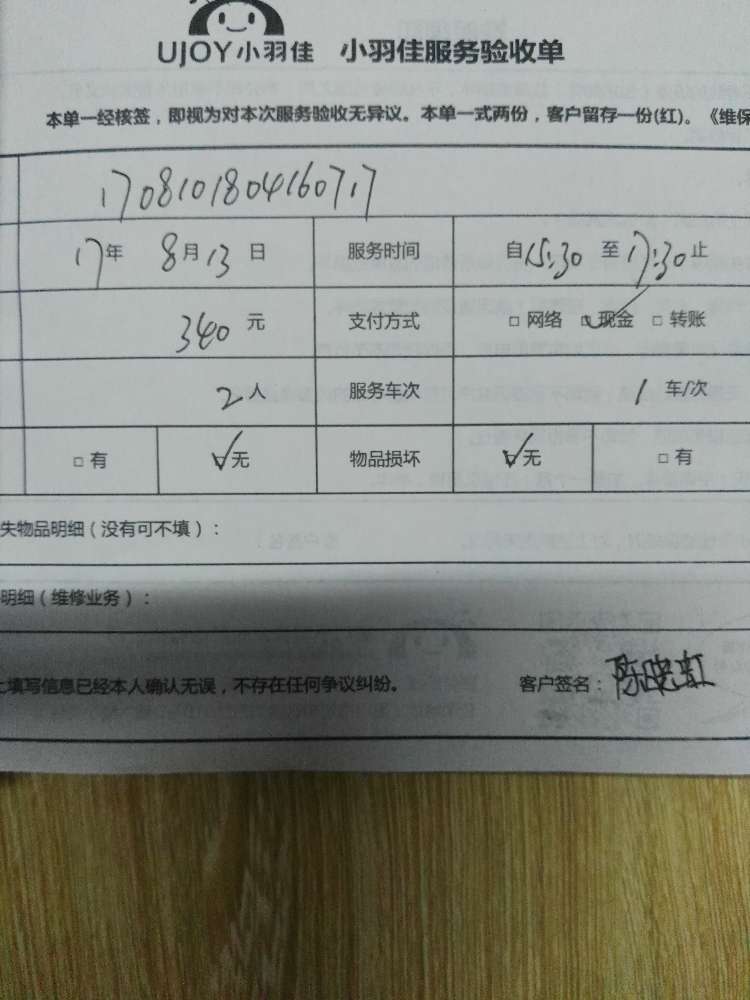 UJOY小羽佳 小羽佳服务验收单
本单一经核签，即视为对本次服务验收无异议。本单一式两份，客户留存一份(红)。《维保
1708101804160717
17年 8月13日 服务时间 自15:30至17:30止
340元 支付方式 □ 网络 ☑ 现金 □ 转账
2人 服务车次 1 车/次
□ 有 ☑无 物品损坏 ☑无 □ 有
失物品明细（没有可不填）：
明细（维修业务）：
上填写信息已经本人确认无误，不存在任何争议纠纷。 客户签名：陈晓虹